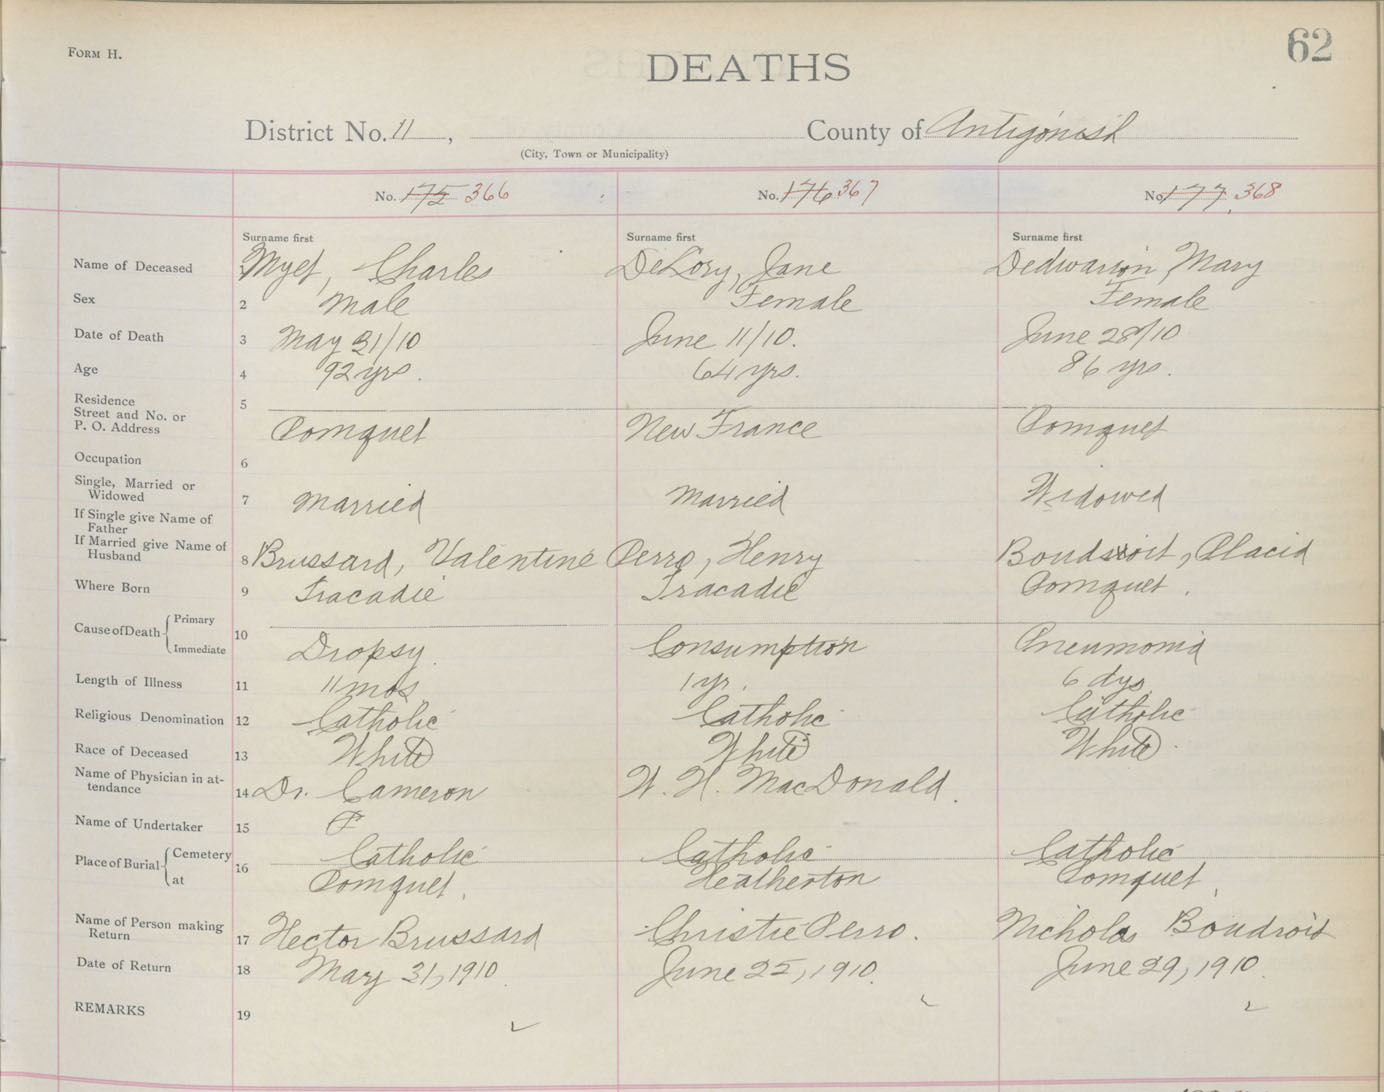 FORM H.
62
DEATHS
District No. 11, County of Antigonish
(City, Town or Municipality)
No. 175 366 No. 176 367 No. 177 368
Surname first Surname first Surname first
Name of Deceased 1 Myet, Charles DeLory, Jane Dedwarin, Mary
Sex 2 Male Female Female
Date of Death 3 May 31/10 June 11/10. June 28/10
Age 4 92 yrs. 64 yrs. 86 yrs.
Residence 5
Street and No. or
P. O. Address Pomquet New France Pomquet
Occupation 6
Single, Married or
Widowed 7 Married Married Widowed
If Single give Name of
Father
If Married give Name of
Husband 8 Brussard, Valentine Perro, Henry Boudroit, Placid
Where Born 9 Tracadie Tracadie Pomquet.
Cause of Death Primary 10
Immediate Dropsy. Consumption Pneumonia
Length of Illness 11 11 mos. 1 yr. 6 dys.
Religious Denomination 12 Catholic Catholic Catholic
Race of Deceased 13 White White White
Name of Physician in at-
tendance 14 Dr. Cameron W. H. MacDonald.
Name of Undertaker 15 P
Place of Burial Cemetery 16 Catholic Catholic Catholic
at Pomquet. Heatherton Pomquet,
Name of Person making
Return 17 Hector Brussard Christie Perro. Nicholas Boudroit
Date of Return 18 May 31, 1910. June 25, 1910. June 29, 1910.
REMARKS 19